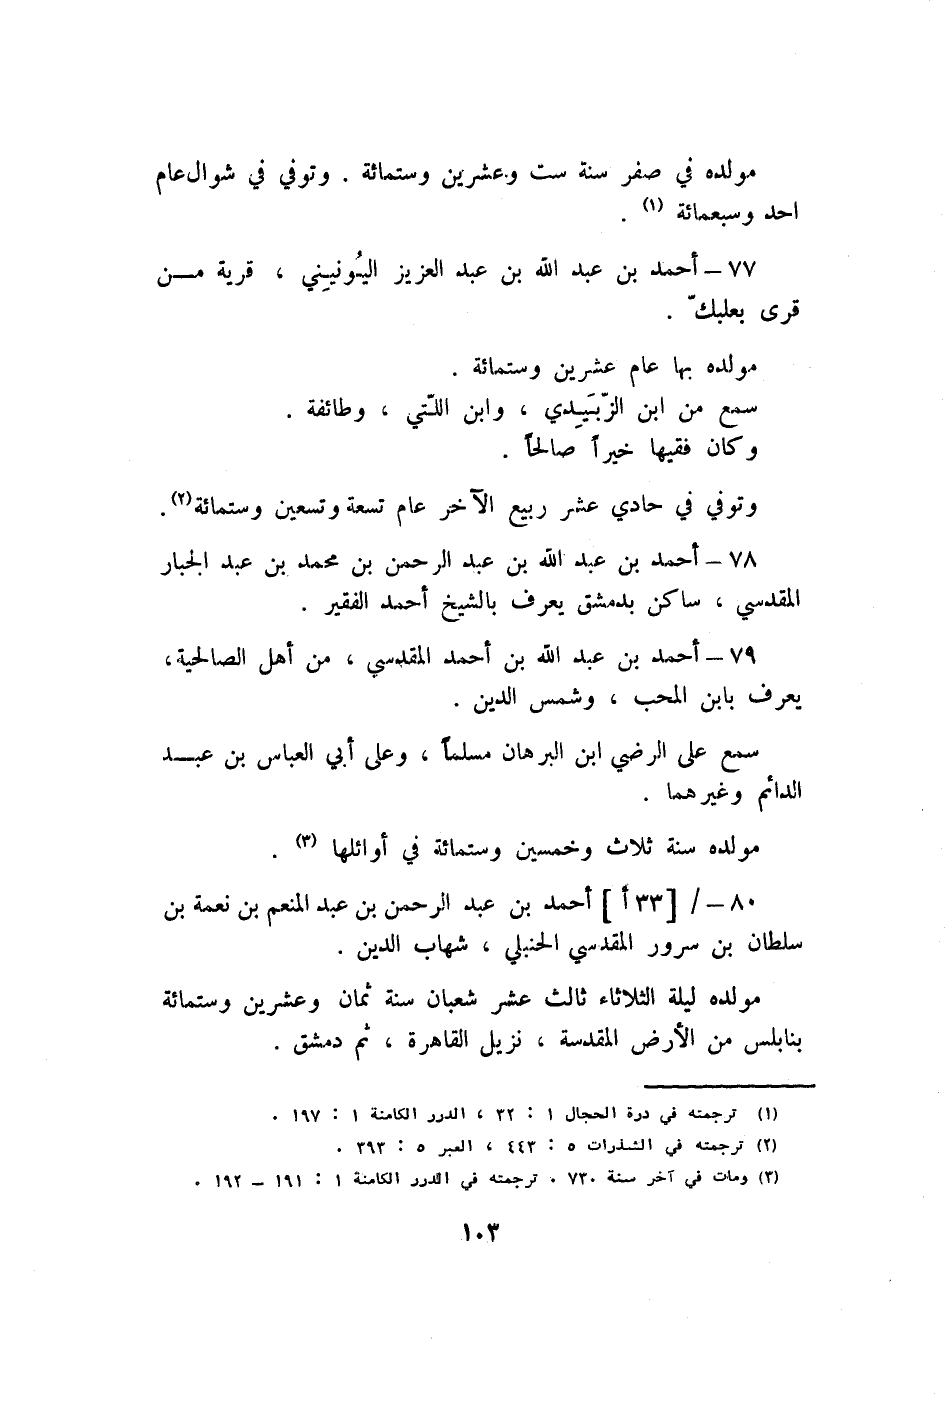 مولده في صفر سنة ست وعشرين وستمائة . وتوفي في شوال عام
احد وسبعمائة (١) .
٧٧ – أحمد بن عبد الله بن عبد العزيز اليُونيني ، قرية مــن
قرى بعلبكّ .
مولده بها عام عشرين وستمائة .
سمع من ابن الزَّبِيدي ، وابن اللتّي ، وطائفة .
وكان فقيها خيراً صالحاً .
وتوفي في حادي عشر ربيع الآخر عام تسعة وتسعين وستمائة (٢) .
٧٨ – أحمد بن عبد الله بن عبد الرحمن بن محمد بن عبد الجبار
المقدسي ، ساكن بدمشق يعرف بالشيخ أحمد الفقير .
٧٩ – أحمد بن عبد الله بن أحمد المقدسي ، من أهل الصالحية ،
يعرف بابن المحب ، وشمس الدين .
سمع على الرضي ابن البرهان مسلماً ، وعلى أبي العباس بن عبــد
الدائم وغيرهما .
مولده سنة ثلاث وخمسين وستمائة في أوائلها (٣) .
٨٠ – / [ ٣٣ أ ] أحمد بن عبد الرحمن بن عبد المنعم بن نعمة بن
سلطان بن سرور المقدسي الحنبلي ، شهاب الدين .
مولده ليلة الثلاثاء ثالث عشر شعبان سنة ثمان وعشرين وستمائة
بنابلس من الأرض المقدسة ، نزيل القاهرة ، ثم دمشق .
(١) ترجمته في درة الحجال ١ : ٣٢ ، الدرر الكامنة ١ : ١٩٧ .
(٢) ترجمته في الشذرات ٥ : ٤٤٣ ، العبر ٥ : ٣٩٣ .
(٣) ومات في آخر سنة ٧٣٠ . ترجمته في الدرر الكامنة ١ : ١٩١ – ١٩٢ .
١٠٣